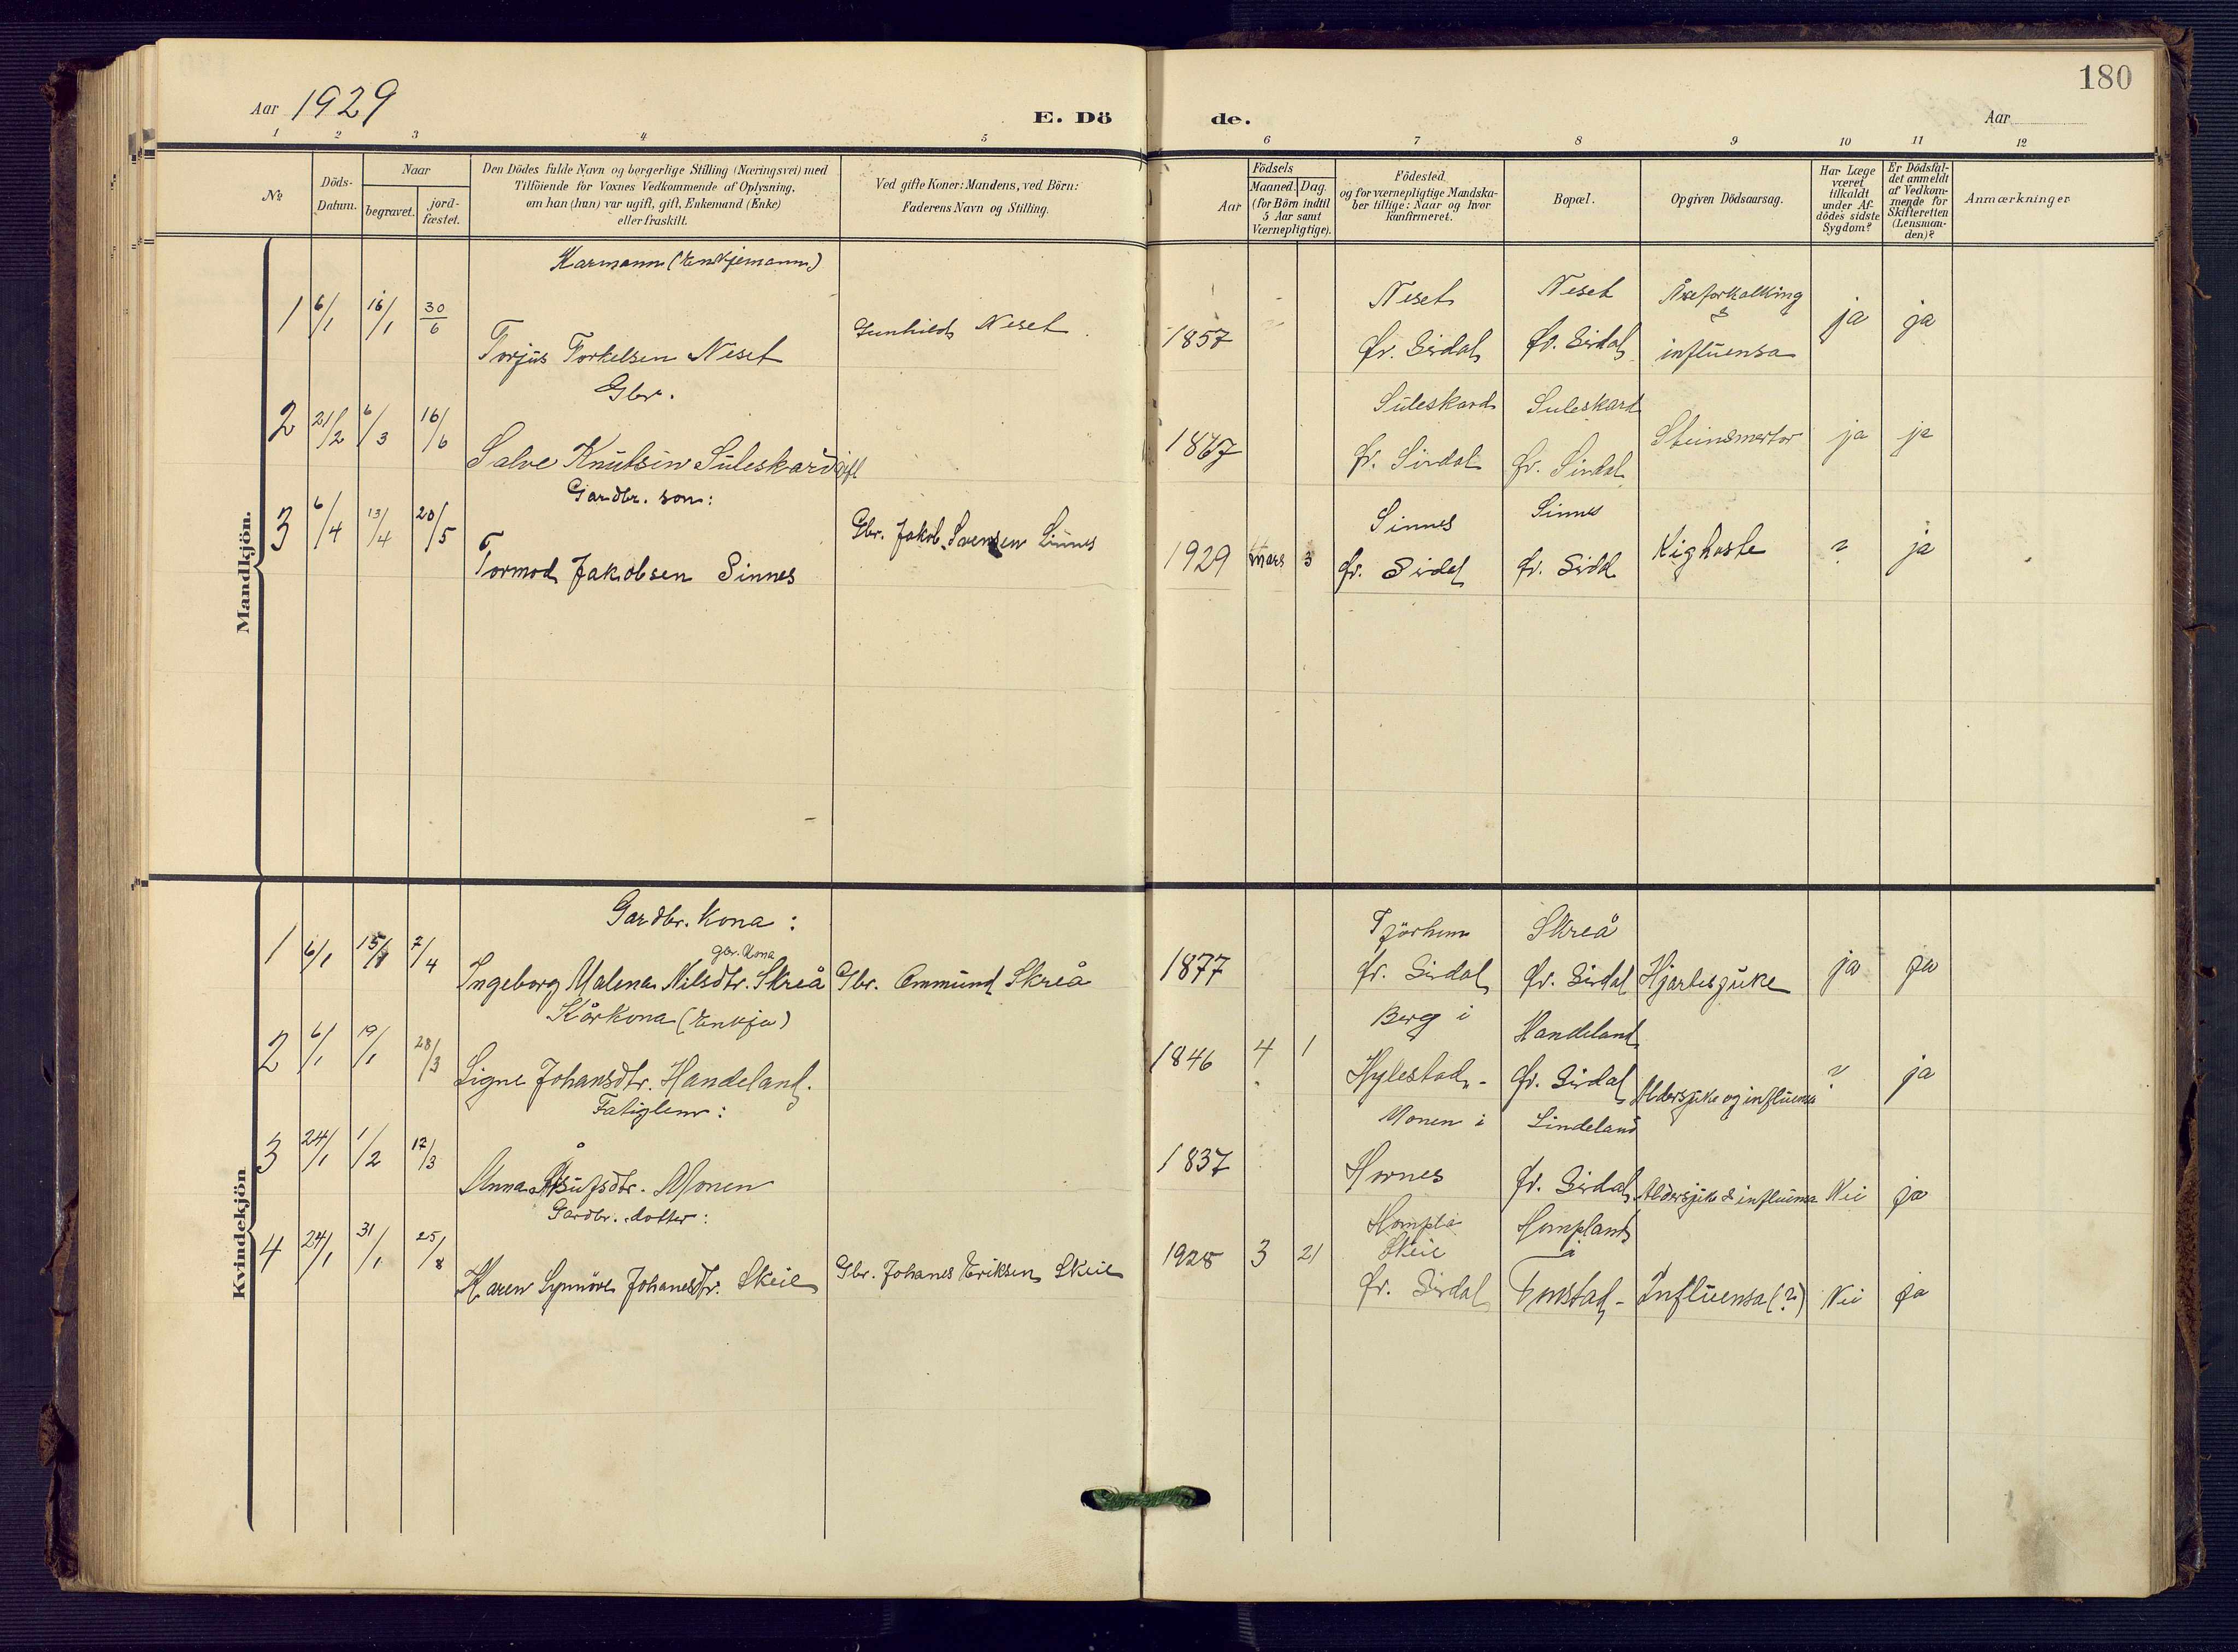 180
Aar 1929
E. Dö de.
Aar
1 2 3 4 5 6 7 8 9 10 11 12
No
Döds-
Datum.
Naar
begravet.
jord-
fæstet.
Den Dödes fulde Navn og borgerlige Stilling (Næringsvei) med
Tilföiende for Voxnes Vedkommende af Oplysning,
om han (hun) var ugift, gift, Enkemand (Enke)
eller fraskilt.
Ved gifte Koner: Mandens, ved Börn:
Faderens Navn og Stilling.
Födsels
Aar
Maaned. Dag.
(for Börn indtil
5 Aar samt
Værnepligtige).
Födested
og for værnepligtige Mandska-
ber tillige: Naar og hvor
konfirmeret.
Bopæl.
Opgiven Dödsaarsag.
Har Læge
været
tilkaldt
under Af-
dödes sidste
Sygdom?
Er Dödsfal-
det anmeldt
af Vedkom-
mende for
Skifteretten
(Lensman-
den)?
Anmærkninger
Mandkjön.
Karmann (Enkjemann)
1 6/1 16/1 30/6 Torjus Torkelsen Neset
Gunhild Neset
1857
Neset
Øv. Sirdal
Neset
Øv. Sirdal
Åreforkalking
&
influensa
ja ja
Gbr.
2 21/2 6/3 16/6 Salve Knutsen Suleskard gift
1867
Suleskard
Øv. Sirdal
Suleskard
Øv. Sirdal
Steinsmertor
ja ja
Gardbr. son:
3 6/4 13/4 20/5 Tormod Jakobsen Sinnes
Gbr. Jakob Svensen Sinnes
1929 Mars 3
Sinnes
Øv. Sirdal
Sinnes
Øv. Sirdal
Kighoste
? ja
Kvindekjön
Gardbr. kona:
gbr. kona
1 6/1 15/1 7/4 Ingeborg Malena Nilsdtr. Skreå
Gbr. Ommund Skreå
1877
Tjörhom
Øv. Sirdal
Skreå
Øv. Sirdal
Hjartesjuke
ja ja
Kårkona (Enkja)
2 6/1 19/1 28/3 Signe Johansdtr. Handeland.
1846 4 1
Berg i
Hylestad -
Handeland
Øv. Sirdal
Aldersjuke og influensa
? ja
Fatiglem:
3 24/1 1/2 17/3 Anna Åsufsdtr. Monen
1837
Monen i
Hornes
Lindeland
Øv. Sirdal
Aldersjuke & influensa
Nei ja
Gardbr. dotter:
4 24/1 31/1 25/8 Karen Synnöve Johanesdtr. Skeie
Gbr. Johanes Eriksen Skeie
1928 3 21
Skeie
Øv. Sirdal
Hompland
å
Tonstad -
Influensa (?)
Nei ja